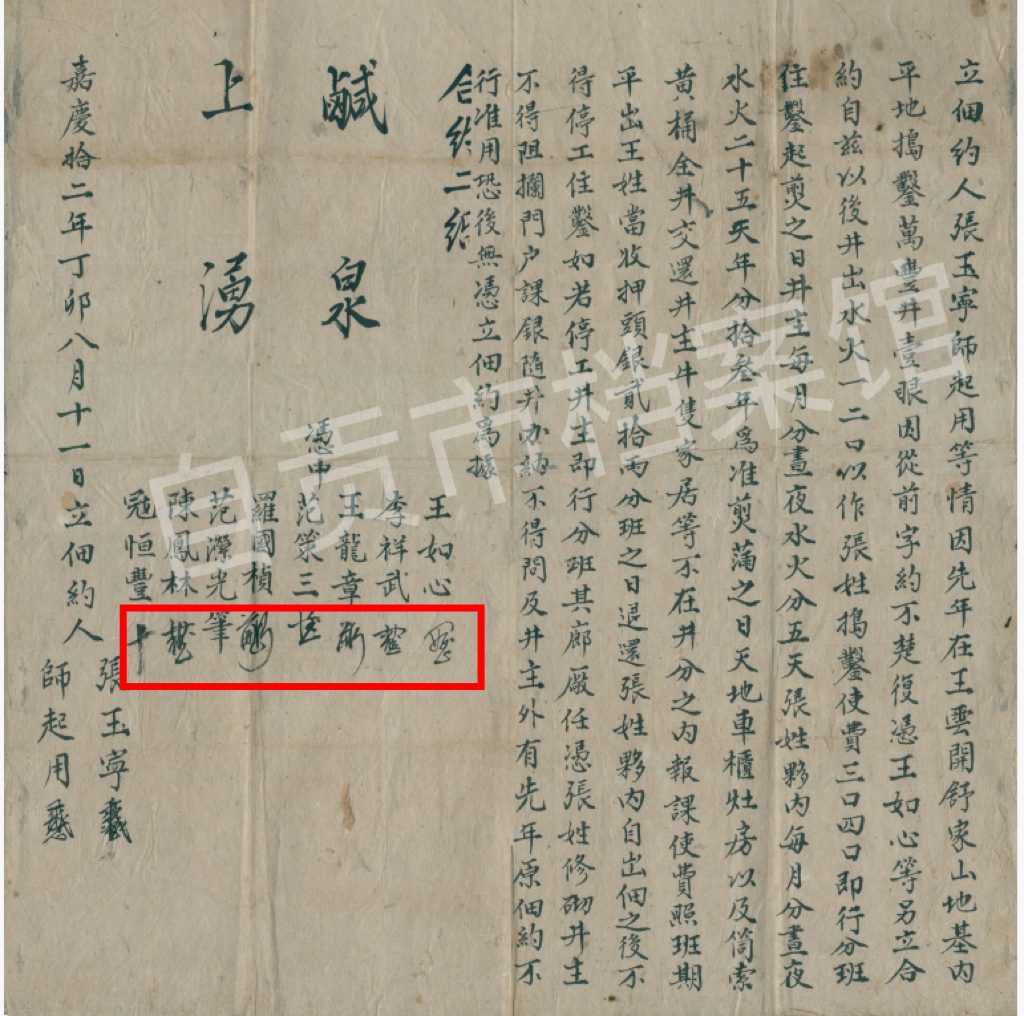 立佃約人張玉寧師起用等情因先年在王雲開舒家山地基内
平地搗鑿萬豐井壹眼因從前字約不楚復憑王如心等另立合
約自兹以後井出水火一二口以作張姓搗鑿使費三口四口即行分班
住鑿起煎之日井主每月分晝夜水火分五天張姓夥内每月分晝夜
水火二十五天年分拾叁年爲准煎滿之日天地車櫃灶房以及筒索
黄桶全井交還井主牛隻家居等不在井分之内報課使費照班期
平出王姓當收押頭銀貳拾兩分班之日退還張姓夥内自出佃之後不
得停工住鑿如若停工井主即行分班其廊廠任憑張姓修砌井主
不得阻攔門户課銀隨井办納不得問及井主外有先年原佃約不
行准用恐後無憑立佃約爲據
合約二紙
鹹泉
上湧
憑中
王如心
李祥武
王龍章
范策三
羅國楨
范濚光筆
陳鳳林
冦恒豐十
嘉慶拾二年丁卯八月十一日立佃約人
張玉寧
師起用
自贡市档案馆